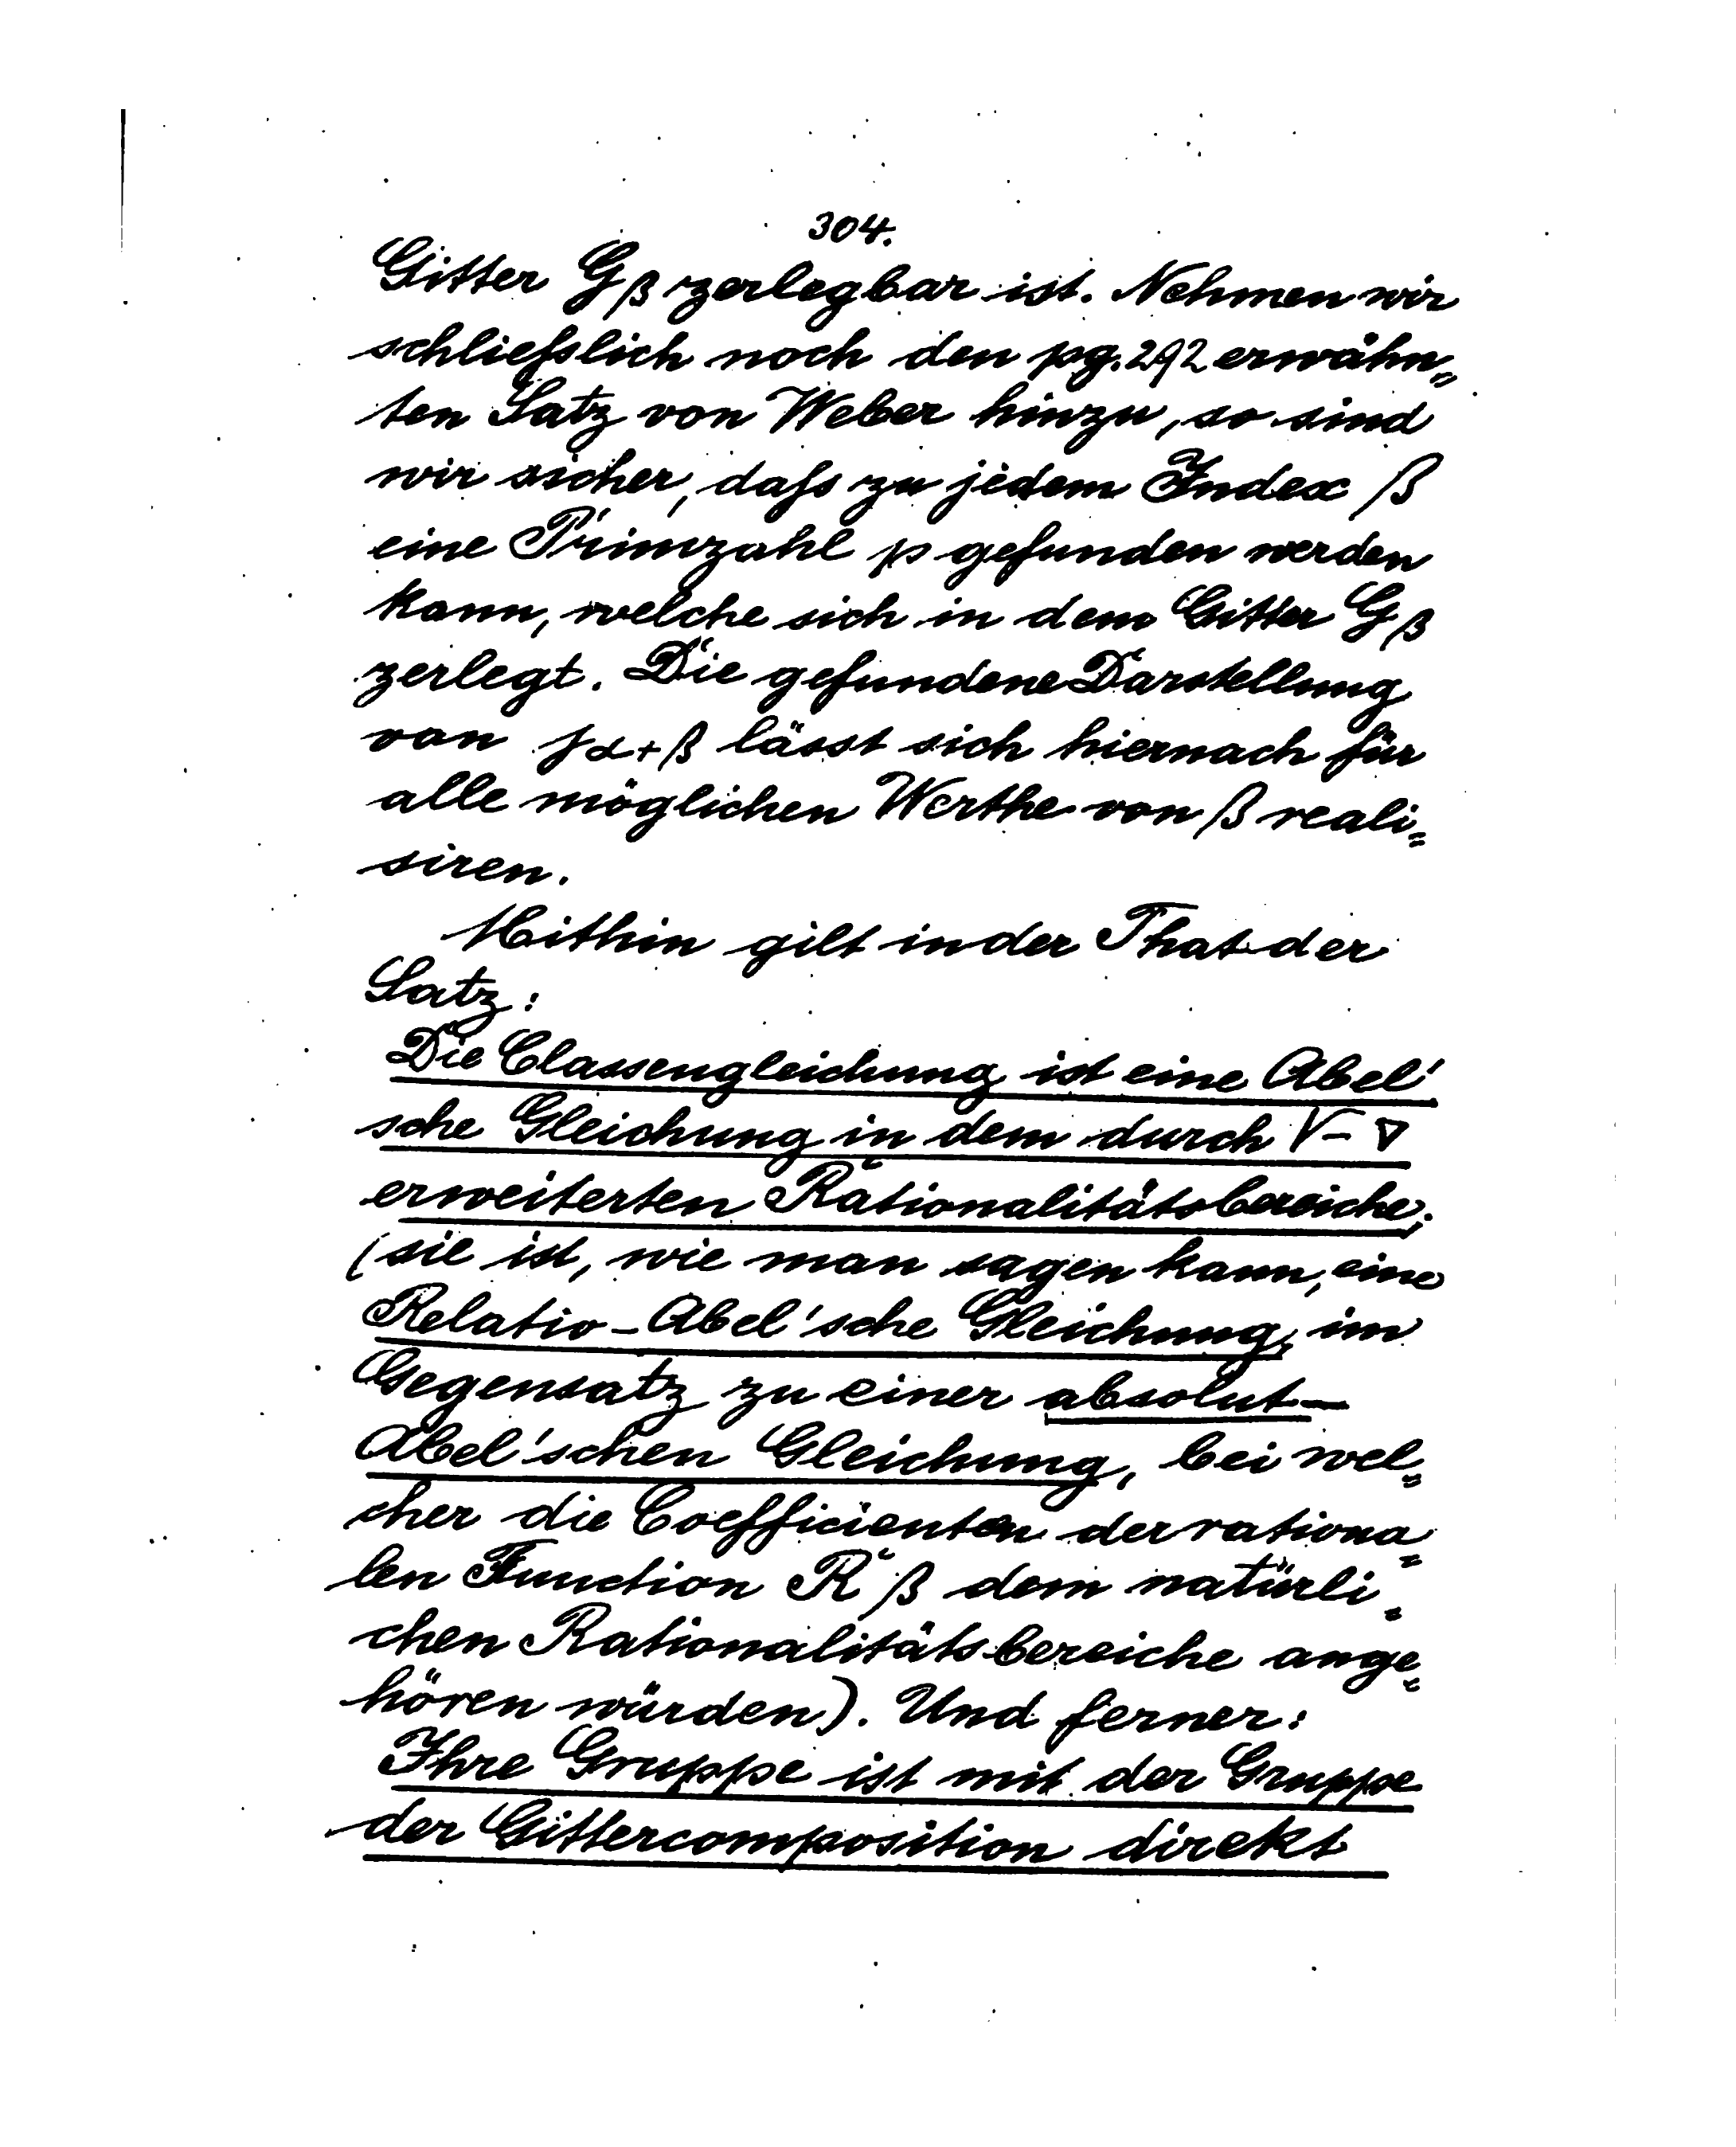 304.
Gitter Gβ zerlegbar ist. Nehmen wir
schliefslich noch den pg. 292 erwähn=
ten Satz von Weber hinzu, so sind
wir sicher, dafs zu jedem Index β
eine Primzahl p gefunden werden
kann, welche sich in dem Gitter Gβ
zerlegt. Die gefundene Darstellung
von jα+β lässt sich hiernach für
alle möglichen Werthe von β reali=
siren.
Mithin gilt in der That der
Satz:
Die Classengleichung ist eine Abel'
sche Gleichung in dem durch √-∇
erweiterten Rationalitätsbereiche;
(sie ist, wie man sagen kann, eine
Relativ-Abel'sche Gleichung, im
Gegensatz zu einer absolut-
Abel'schen Gleichung, bei wel=
cher die Coefficienten der rationa=
len Function Rβ dem natürli=
chen Rationalitätsbereiche ange=
hören würden). Und ferner:
Ihre Gruppe ist mit der Gruppe
der Gittercomposition direkt